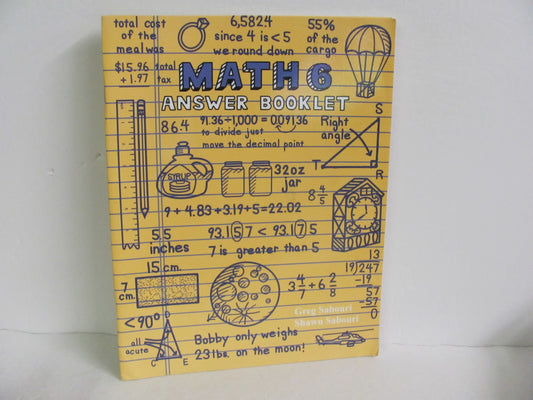 total cost
of the
meal was
$15.96 total
+ 1.97 tax
6,5824
since 4 is <5
we round down
55%
of the
cargo
MATH 6
ANSWER BOOKLET
86.4
91.36÷1,000 = 0.09136
to divide just
move the decimal point
Right
angle
S
T
R
SYRUP
32oz
jar
8 4/5
9 + 4.83 + 3.19 + 5 = 22.02
5.5
inches
93.157 < 93.175
7 is greater than 5
15 cm.
7
cm.
3 4/7 ÷ 6 2/8
13
19/247
-19
57
-57
0
<90°
all
acute
C
E
Bobby only weighs
23 lbs. on the moon!
Greg Sabouri
Shawn Sabouri